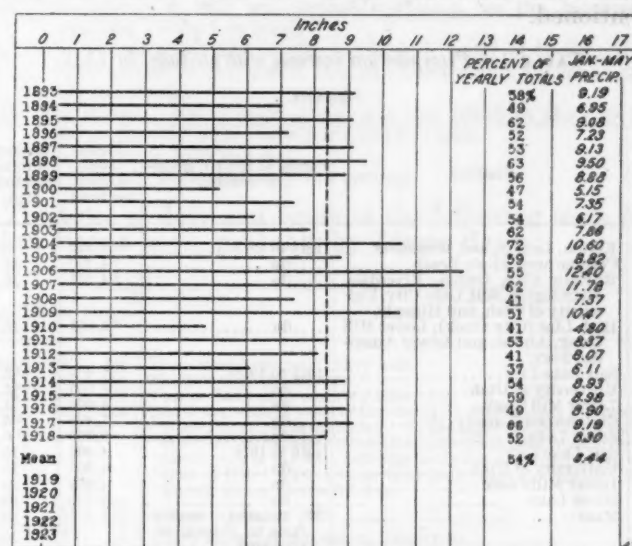 Inches
0 1 2 3 4 5 6 7 8 9 10 11 12 13 14 15 16 17
PERCENT OF JAN-MAY
YEARLY TOTALS PRECIP.
1893 58% 9.19
1894 49 6.95
1895 62 9.08
1896 52 7.23
1897 53 9.13
1898 63 9.50
1899 56 8.88
1900 47 5.15
1901 54 7.35
1902 54 6.17
1903 62 7.86
1904 72 10.60
1905 59 8.82
1906 55 12.40
1907 62 11.78
1908 41 7.37
1909 51 10.47
1910 41 4.80
1911 53 8.37
1912 41 8.07
1913 37 6.11
1914 54 8.93
1915 59 8.98
1916 49 8.90
1917 66 9.19
1918 52 8.30
Mean 54% 8.44
1919
1920
1921
1922
1923